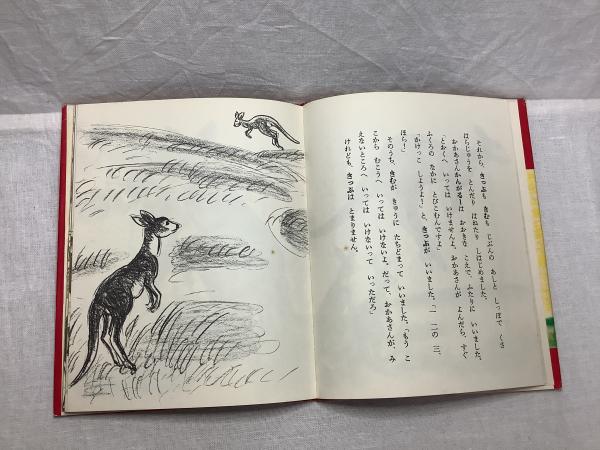 それから、きっぷも きむも じぶんの あしと しっぽで くさ
はらじゅうを とんだり はねたり しはじめました。
おかあさんかんがるーは おおきな こえで、ふたりに いいました。
「とおくへ いっては いけませんよ。おかあさんが よんだら、すぐ
ふくろの なかに とびこむんですよ」
「かけっこ しようよ！」と、きっぷが いいました。「一 二の 三、
ほら！」
そのうち、きむが きゅうに たちどまって いいました。「もう こ
こから むこうへ いっては いけないよ。だって、おかあさんが、み
えないところへ いっては いけないって いっただろ」
けれども、きっぷは とまりません。